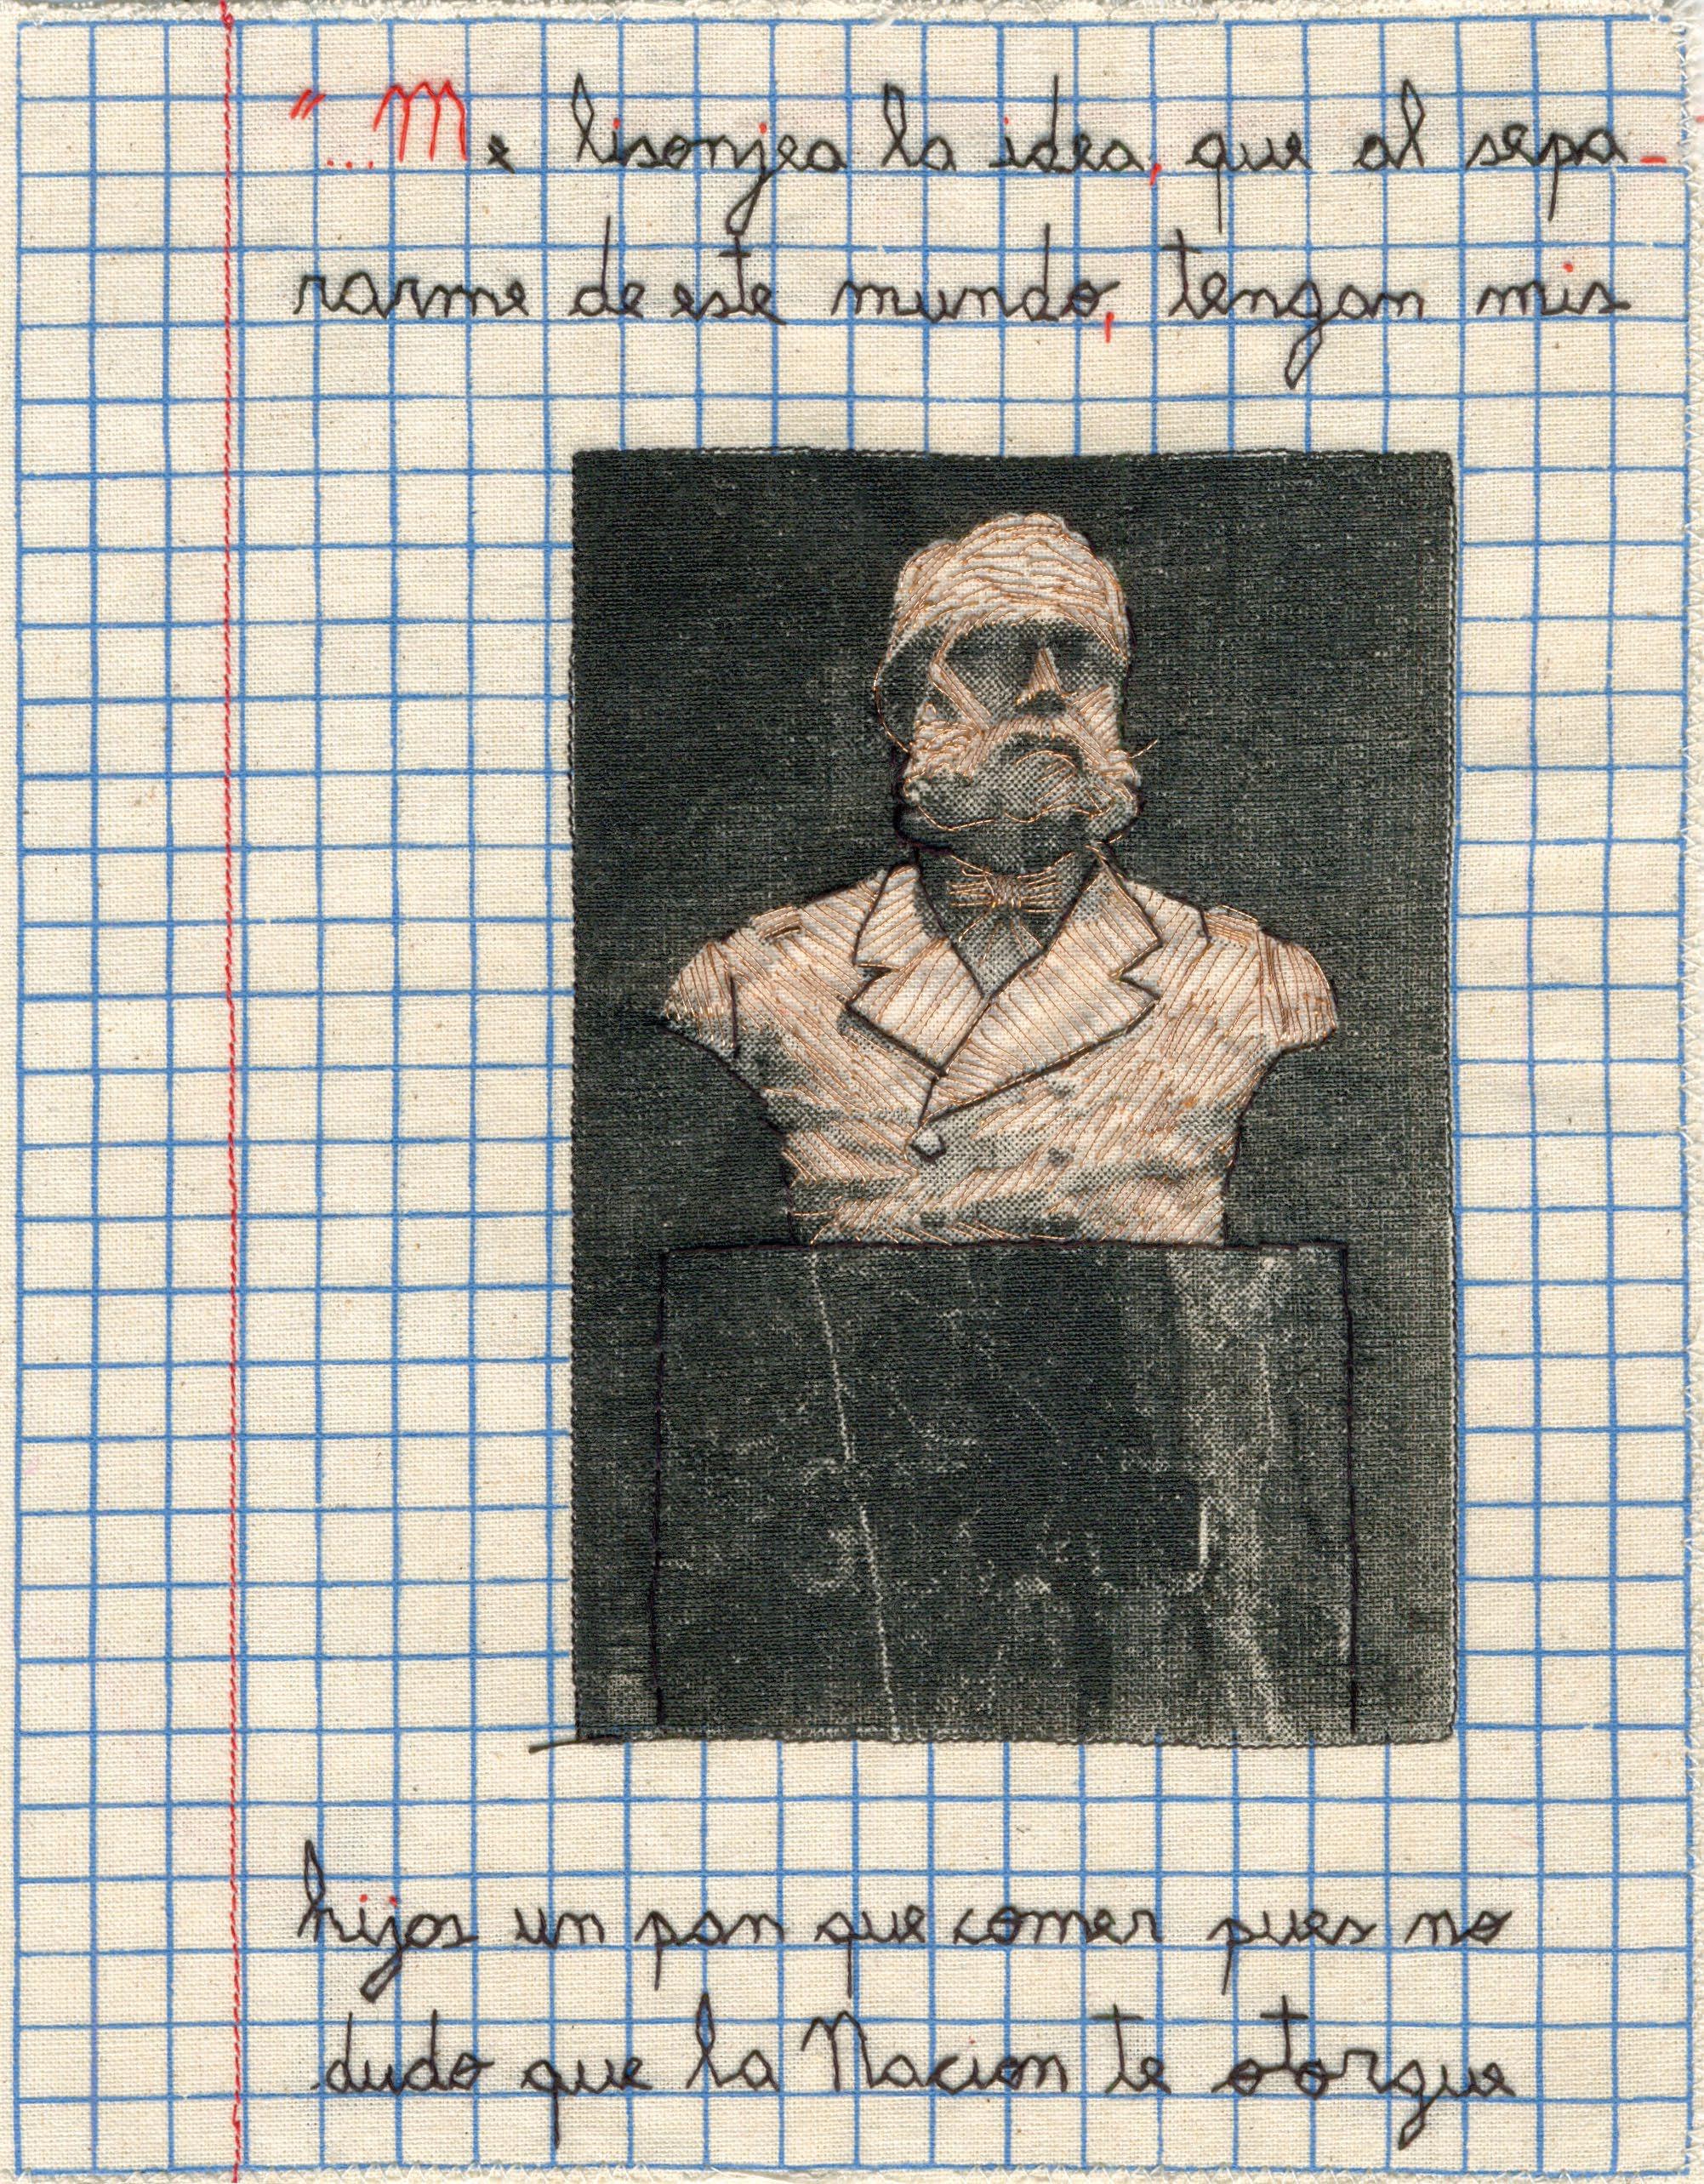 "...Me lisonjea la idea, que al sepa-
rarme de este mundo, tengan mis
hijos un pan que comer pues no
dudo que la Nacion te otorgue